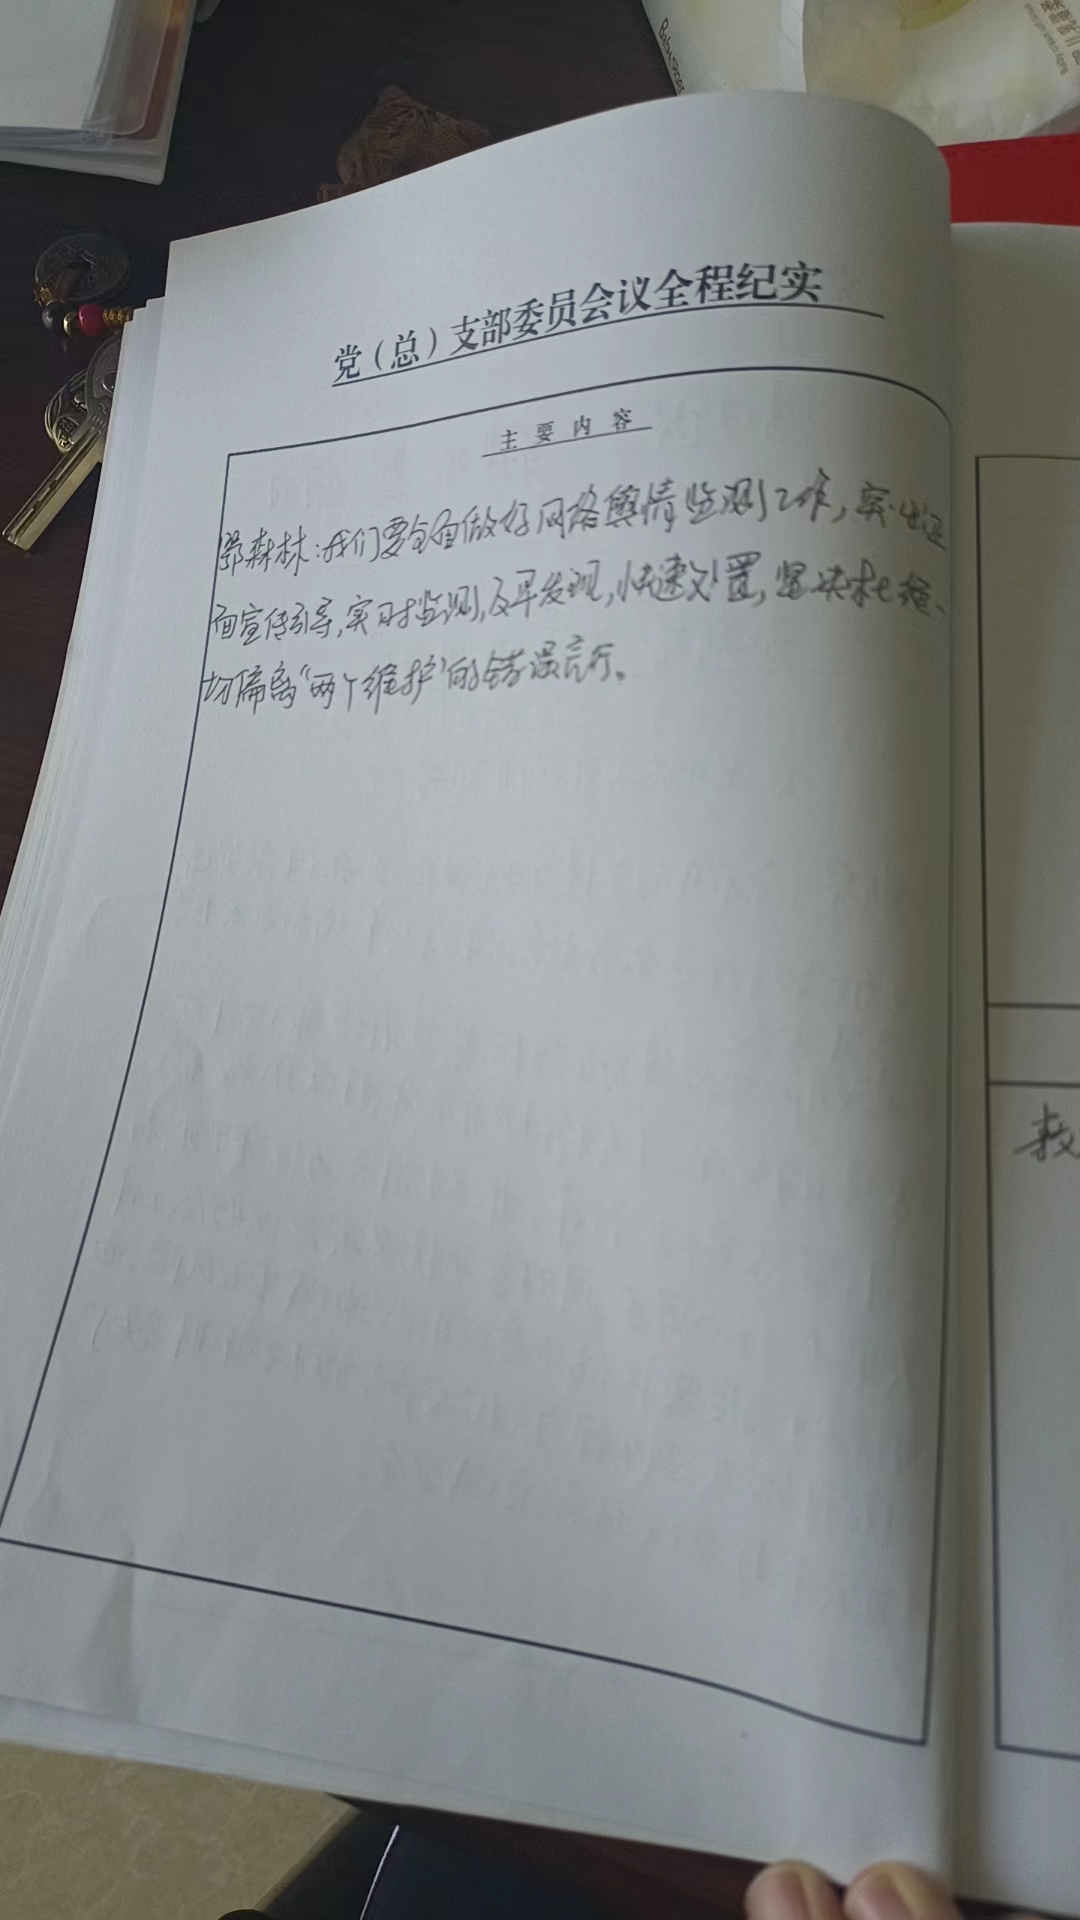 党（总）支部委员会议全程纪实
主要内容
鄂森林:我们要全面做好网络舆情监测工作,突出正
面宣传引导,实时监测,及早发现,快速处置,坚决杜绝一
切偏离“两个维护”的错误言行。